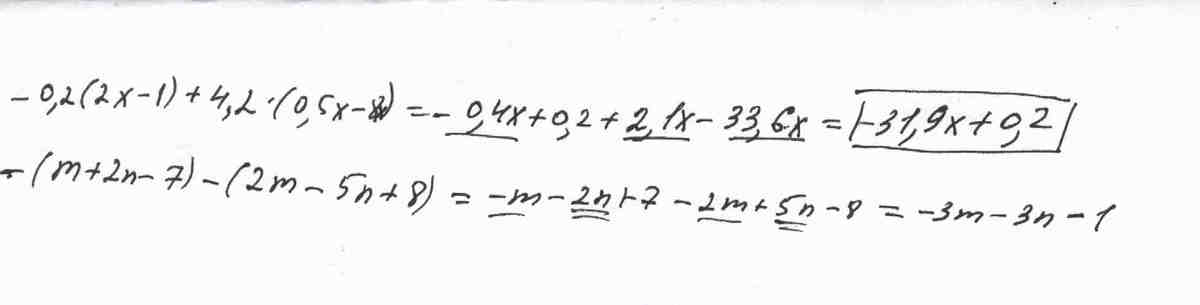 - 0,2(2x-1)+4,2·(0,5x-8x) = - 0,4x+0,2+2,1x-33,6x = -31,9x+0,2
-(m+2n-7)-(2m-5n+8) = -m-2n+7-2m+5n-8 = -3m-3n-1